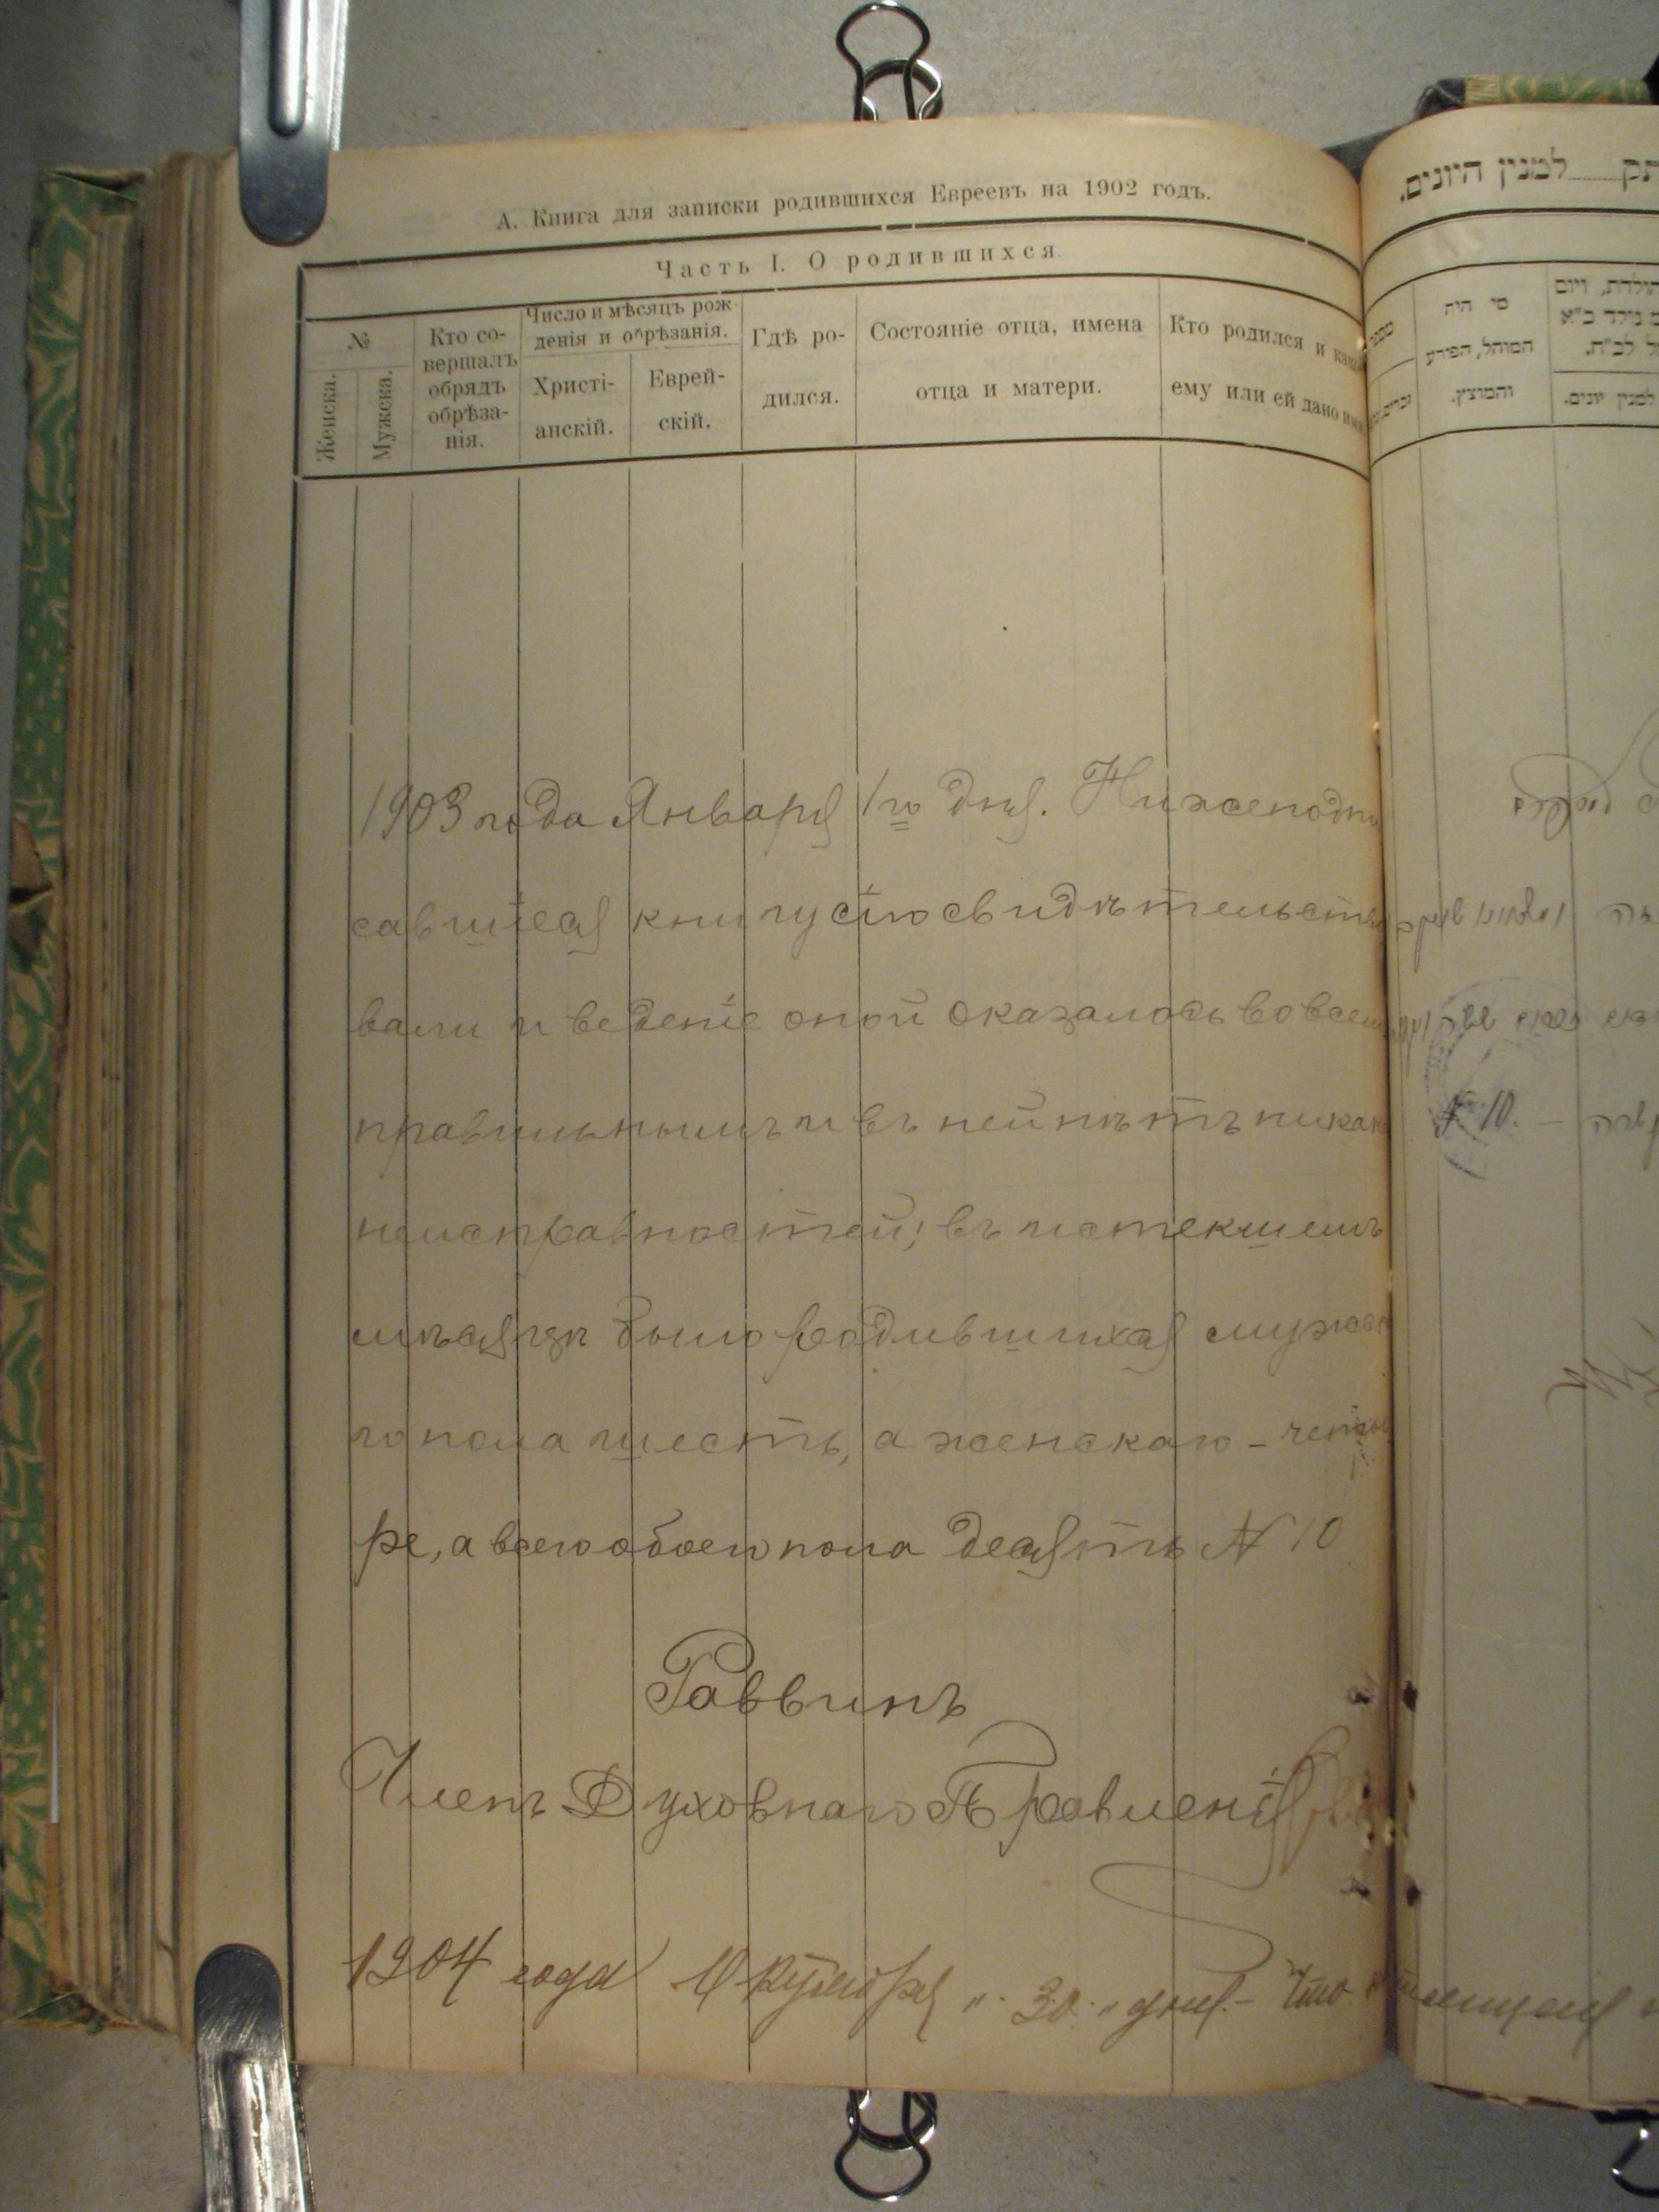 А. Книга для записки родившихся Евреевъ на 1902 годъ.
Часть I. О родившихся
№
Женска.
Мужска.
Кто со-
вершалъ
обрядъ
обрѣза-
нія.
Число и мѣсяцъ рож-
денія и обрѣзанія.
Христі-
анскій.
Еврей-
скій.
Гдѣ ро-
дился.
Состояніе отца, имена
отца и матери.
Кто родился и како
ему или ей дано имя
1903 года Января 1го дня. Нижеподпи
савшіеся книгу сію свидѣтельство
вали и веденіе оной оказалось во всемъ
правильнымъ и въ ней нѣтъ никак
неисправностей; въ истекшемъ
мѣсяцѣ было родившихся мужск
го пола шесть, а женскаго - четы
ре, а всего обоего пола десять № 10
Раввинъ
Членъ Духовнаго Правленія
1904 года Октября „30„ дня. - Что
למנין היונים.
מי היה
המוהל, הפירע
והמוצץ.
למנין יונים.
№ 10. -